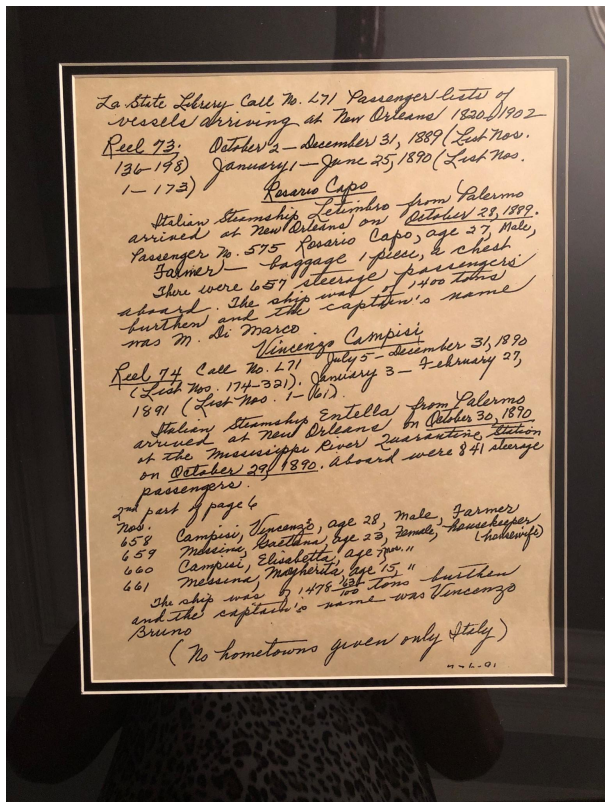 La State Library Call No. L71 Passenger lists of
vessels arriving at New Orleans 1820-1902
Reel 73. October 2 - December 31, 1889 (List Nos.
136-198) January 1 - June 25, 1890 (List Nos.
1-173)
Rosario Capo
Italian Steamship Letimbro from Palermo
arrived at New Orleans on October 28, 1889.
Passenger No. 575 Rosario Capo, age 27, Male,
Farmer - baggage 1 piece, a chest
There were 657 steerage passengers
aboard. The ship was of 1400 tons
burthen and the captain's name
was M. Di Marco
Vincenzo Campisi
Reel 74 Call No. L71 July 5 - December 31, 1890
(List Nos. 174-321). January 3 - February 27,
1891 (List Nos. 1-61).
Italian Steamship Entella from Palermo
arrived at New Orleans on October 30, 1890
at the Mississippi River Quarantine Station
on October 29, 1890. Aboard were 841 steerage
passengers.
2nd part of page 6
Nos.
658 Campisi, Vincenzo, age 28, Male, Farmer
659 Messina, Gaetana, age 23, Female, housekeeper
(housewife)
660 Campisi, Elisabetta, age "
661 Messina, Margherita, age 15, "
The ship was of 1478 tons burthen
and the captain's name was Vincenzo
Bruno
(No hometowns given only Italy)